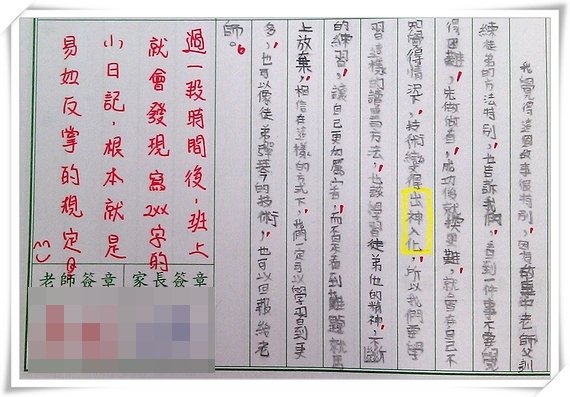 我覺得這個故事很特別，因為故事中老師父訓
練徒弟的方法特別，也告訴我們，看到一件事不要覺
得困難，先做做看，成功後就挑更難，就會在自己不
知覺得情況下，技術變得出神入化，所以我們要學
習這樣的讀書方法，也該學習徒弟他的精神，不斷
的練習，讓自己更加厲害，而不是看到難題就馬
上放棄，相信在這樣的方式下，我們一定可以學習到更
多，也可以像徒弟彈琴的技術，也可以回報給老
師。
過一段時間後，班上
就會發現寫200字的
小日記，根本就是
易如反掌的規定。師
家長簽章
老師簽章